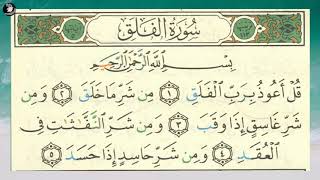 سُورَةُ الْفَلَقِ
بِسْمِ اللَّهِ الرَّحْمَٰنِ الرَّحِيمِ
قُلْ أَعُوذُ بِرَبِّ الْفَلَقِ ١ مِن شَرِّ مَا خَلَقَ ٢ وَمِن
شَرِّ غَاسِقٍ إِذَا وَقَبَ ٣ وَمِن شَرِّ النَّفَّاثَاتِ فِي
الْعُقَدِ ٤ وَمِن شَرِّ حَاسِدٍ إِذَا حَسَدَ ٥